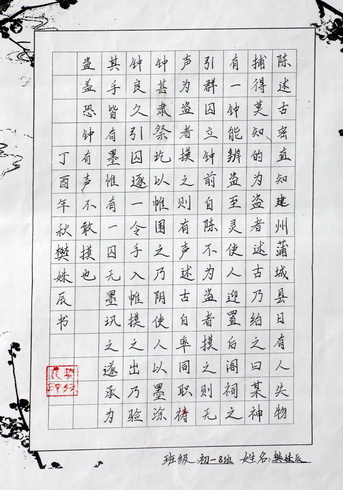 陈述古密直知建州蒲城县日有人失物
捕得莫知的为盗者述古乃绐曰人某神
有一钟能辨盗至灵使人迎置后阁祠之
引群囚立钟前自陈不为盗者摸之则无
声为盗者摸之则有声述古自率同职祷
钟甚肃祭讫以帷围之乃阴使人以墨涂
钟良久引囚逐一令手入帷摸之出乃验
其手皆有墨惟有一囚无墨讯之遂承为
盗盖恐钟有声不敢摸也
丁酉年秋樊姝辰书
班级 初一8班 姓名:樊姝辰